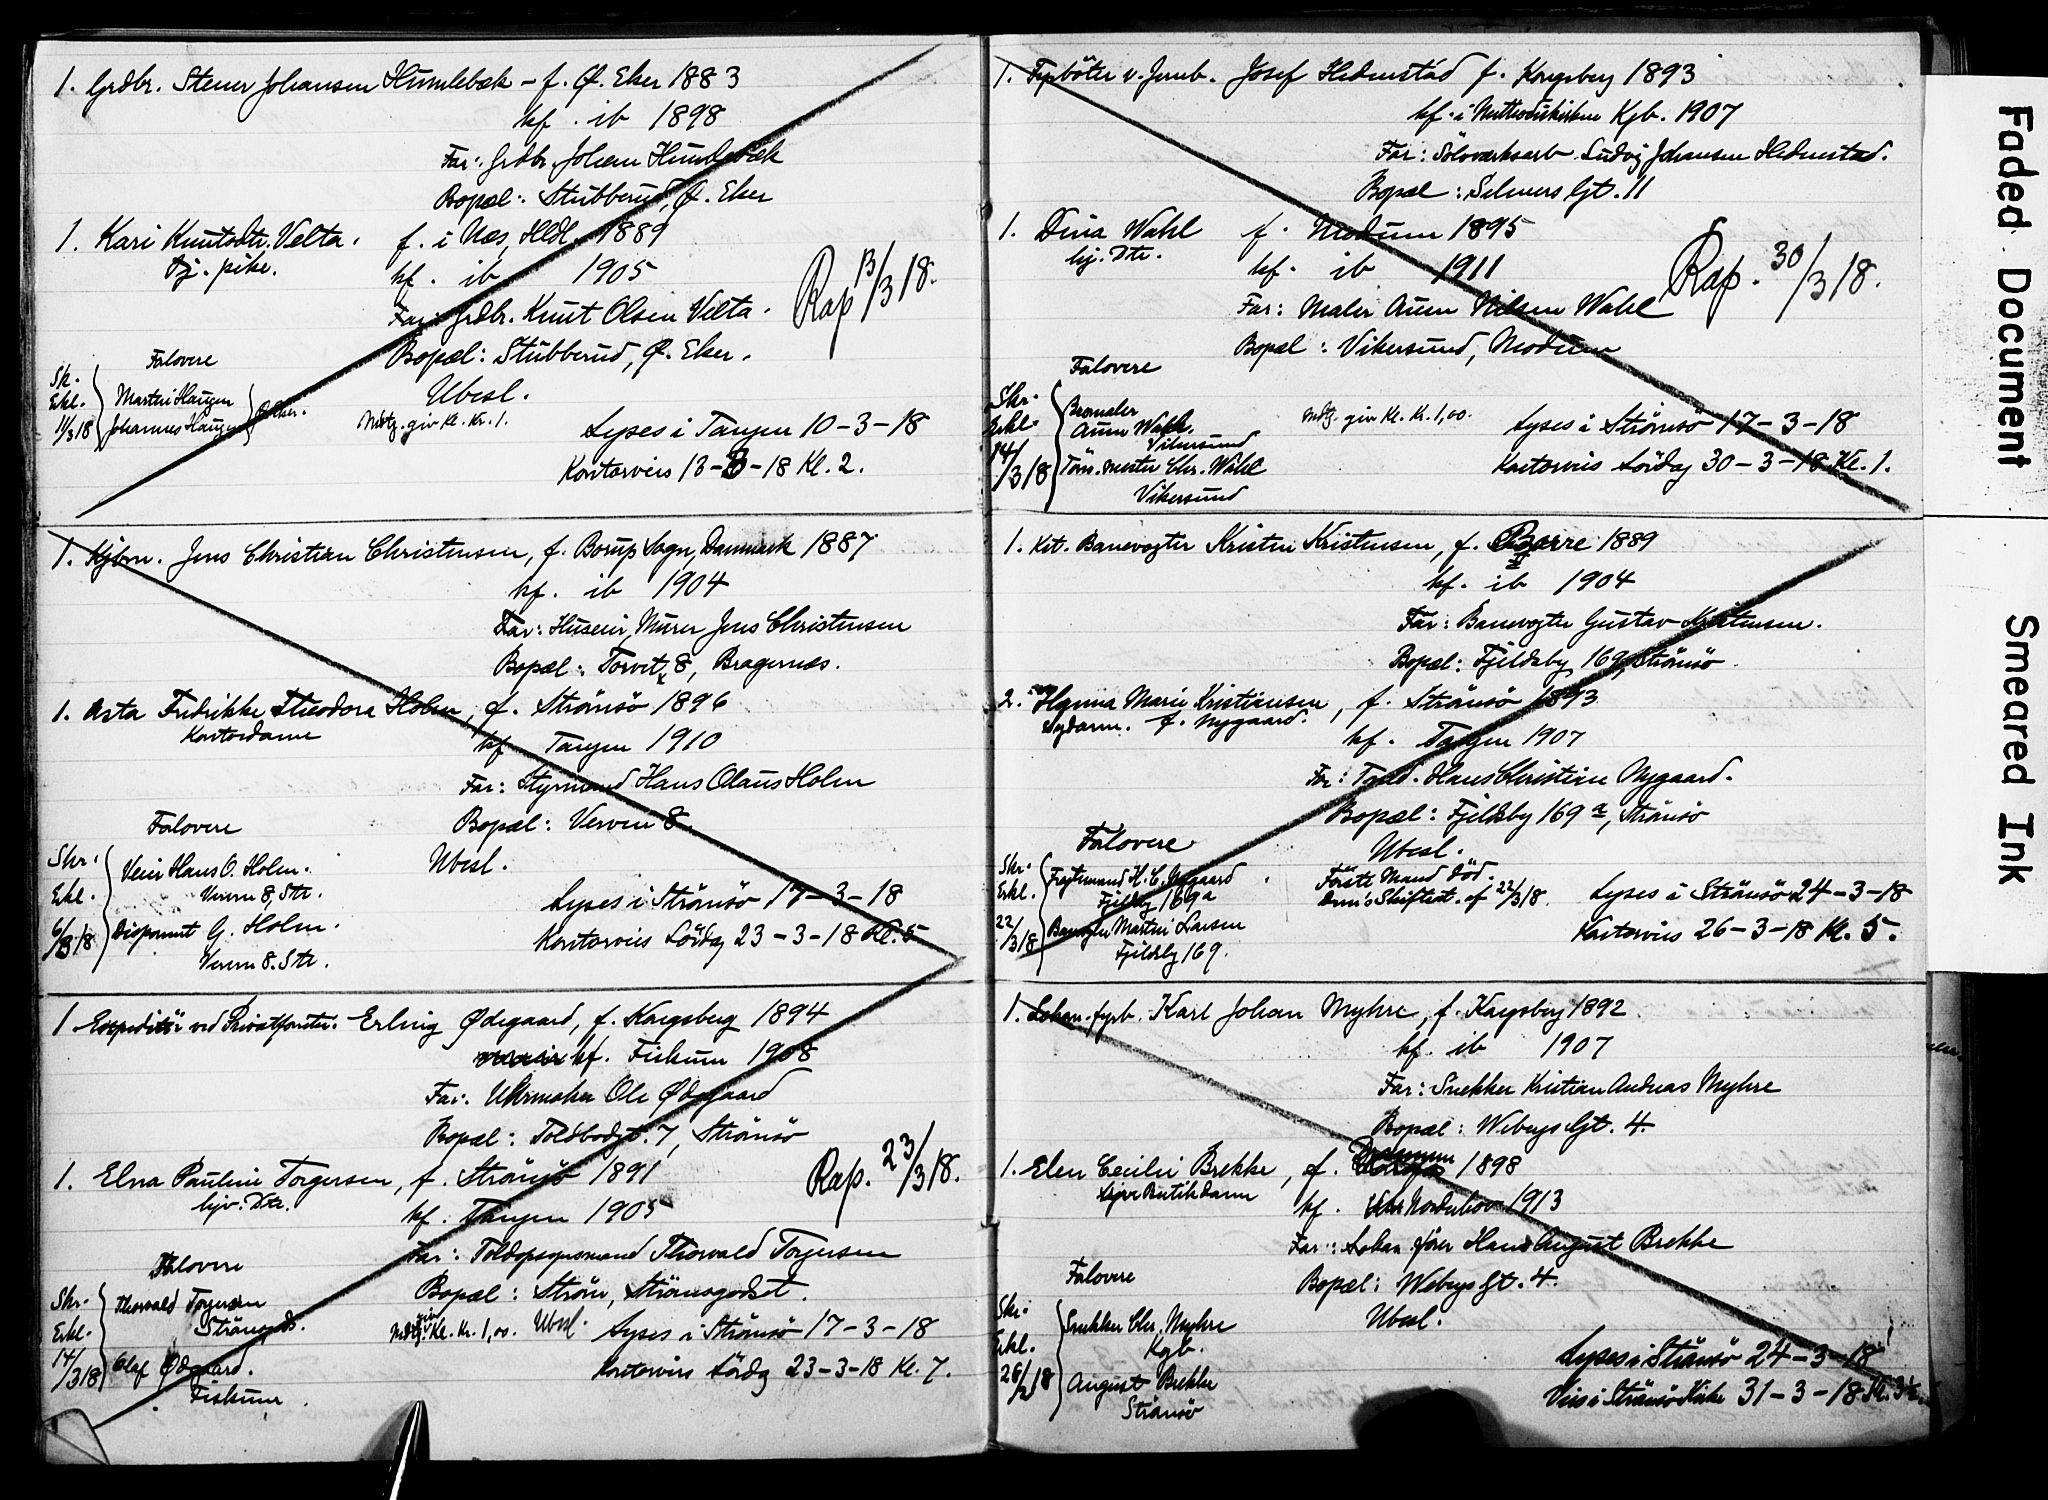 1. Grdbr. Stener Johansen Humlebæk – f. Ø. Eker 1883
kf. ib 1898
Far: Grdbr. Johan Humlebæk
Bopæl: Stubberud, Ø. Eker
1. Kari Knutsdtr. Velta. f. i Næs, Hldl. 1889
tj. pike. kf. ib 1905
Far: Grdbr. Knut Olsen Velta.
Rap 13/3 18.
Bopæl: Stubberud, Ø. Eker.
Forlovere
Ubesl.
Sk. Erkl. 11/3 18
Martin Haugen
Johannes Haugen
Ø. Eker.
Mdtg. giv. Kl. Kr. 1.
Lyses i Tangen 10–3–18
Kontorvies 13–3–18 Kl. 2.
1. Kjbm. Jens Christian Christensen, f. Borup Sogn, Danmark 1887
kf. ib 1904
Far: Huseier, Murer Jens Christensen
Bopæl: Torvet 8, Bragernæs.
1. Asta Fredrikke Theodora Holm, f. Strömsö 1896
Kontordame kf. Tangen 1910
Far: Styrmand Hans Olaus Holm
Bopæl: Verven 8.
Forlovere
Ubesl.
Skr. Erkl. 6/3 18
Hans O. Holm.
Verven 8, Str.
Disponent G. Holm.
Verven 8. Str.
Lyses i Strömsö 17–3–18
Kontorvies Lördag 23–3–18 Kl. 5
1 Expeditör ved Privatforetn. Erling Ødegaard, f. Kongsberg 1894
kf. Fiskum 1908
Far: Uhrmaker Ole Ødegaard
Bopæl: Toldbodgt. 7, Strömsö
1. Elna Pauline Torgersen, f. Strömsö 1891
hjv. Dtr. kf. Tangen 1905
Rap. 23/3 18.
Far: Toldopsynsmand Thorvald Torgersen
Forlovere
Bopæl: Ström, Strömsgodset.
Skr. Erkl. 14/3 18
Thorvald Torgersen
Strömsgods.
Olaf Ødegaard.
Fiskum
Mdtg. giv. Kl. Kr. 1,00. Ubesl. Lyses i Strömsö 17–3–18
Kontorvies Lördag 23–3–18 Kl. 7.
1. Fyrböter v. Jernb. Josef Hedenstad f. Kongsberg 1893
kf. i Methodistkirken Kgb. 1907
Far: Sölvværksarb. Ludvig Johansen Hedenstad.
Bopæl: Selmers Gt. 11
1. Dina Wahl f. Modum 1895
hj. Dtr. kf. ib 1911
Rap. 30/3 18.
Far: Maler Aum Nilsen Wahl
Bopæl: Vikersund, Modum
Forlovere
Skr. Erkl. 14/3 18
Aum Wahl.
Vikersund
Töm. mester Chr. Wahl
Vikersund
Mdtg. giv. Kl. Kr. 1,00.
Lyses i Strömsö 17–3–18
Kontorvies Lördag 30–3–18 Kl. 1.
1. Kst. Banevogter Kristen Kristensen, f. Borre 1889
kf. ib 1904
Far: Banevogter Gustav Kristensen.
Bopæl: Fjeldsby 169, Strömsö
2. Hanna Marie Kristiansen, f. Strömsö 1893
Sydame. f. Nygaard. kf. Tangen 1907
Far: Hans Christian Nygaard.
Bopæl: Fjeldsby 169 a, Strömsö
Forlovere
Ubesl.
Skr. Erkl. 22/3 18
Fragtemand H. C. Nygaard
Fjeldsby 169 a
Banevogter Martin Larsen
Fjeldsby 169.
Förste Mand Död.
Skifteat. af 22/3 18.
Lyses i Strömsö 24–3–18
Kontorvies 26–3–18 Kl. 5.
1. Lokom. fyrb. Karl Johan Myhre, f. Kongsberg 1892
kf. ib 1907
Far: Snekker Kristian Andreas Myhre
Bopæl: Wibergs Gt. 4.
1. Elen Cecilie Brekke, f. Drammen 1898
Butikdame kf. Norderhov 1913
Far: Lokom. förer Hans August Brekke
Forlovere
Bopæl: Wibergs Gt. 4.
Ubesl.
Skr. Erkl. 28/2 18
Snekker Chr. Myhre
Kgb.
August Brekke
Strömsö
Lyses i Strömsö 24–3–18
Vies i Strömsö Kirke 31–3–18 Kl. 3½.
Faded Document
Smeared Ink